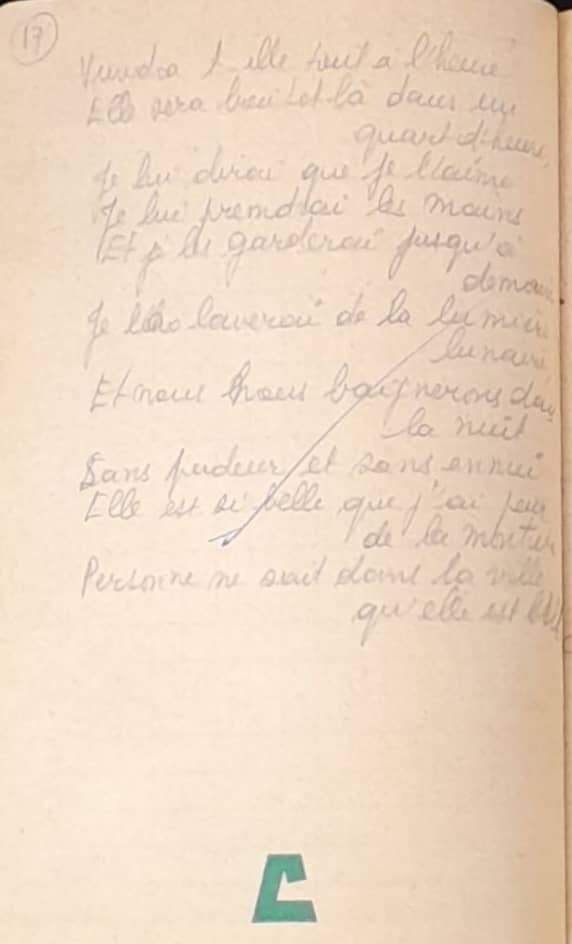 17
Viendra t elle tout a l'heure
Elle sera bientot là dans un
quart d'heure
Je lui dirai que je l'aime
Je lui prendrai les mains
Et je les garderai jusqu'à
demain
Je la laverai de la lumière
lunaire
Et nous nous baignerons dans
la nuit
Sans pudeur et sans ennui
Elle est si belle que j'ai peur
de la montrer
Personne ne sait dans la ville
qu'elle est
L